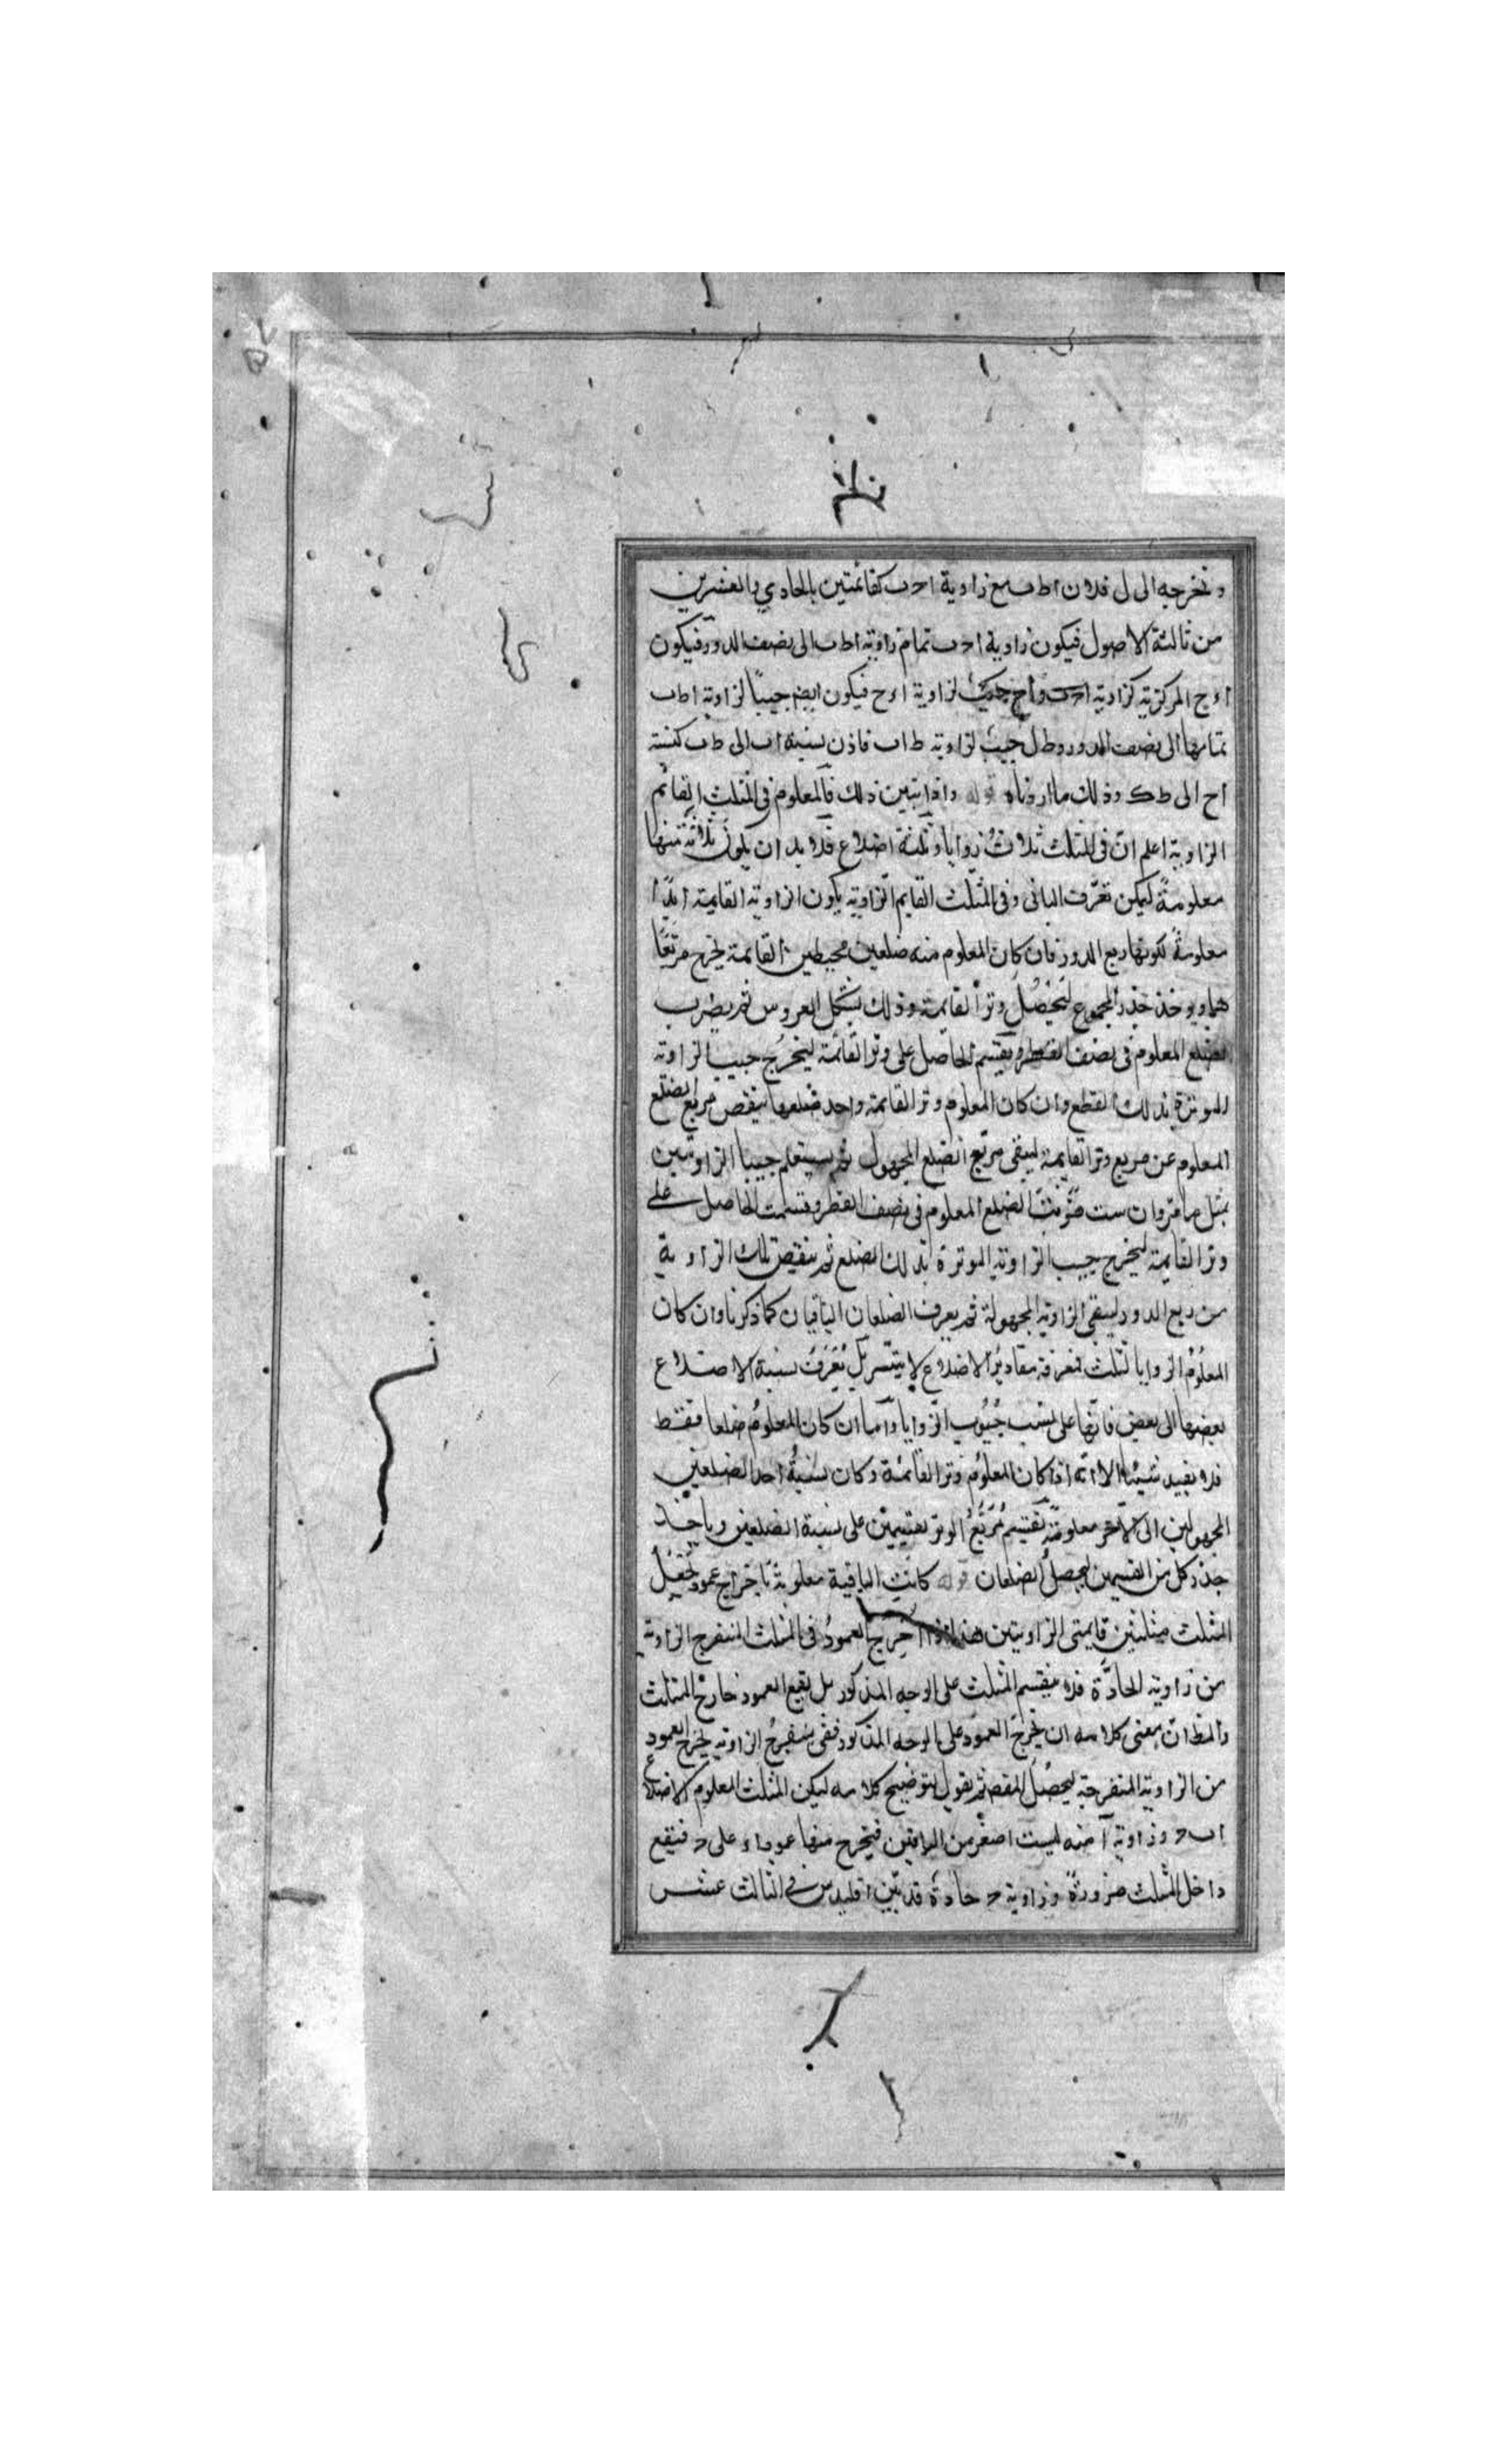 ونخرجه الى ل فلان اط ب مع زاوية اح ب كقائمتين بالحادي والعشرين
من ثالثة الاصول فيكون زاوية اح ب تمام زاوية اط ب الى نصف الدور فيكون
اء ج المركزية كزاوية لزاوية اء ح فيكون ايضا جيبا لزاوية اط ب
تمامها الى نصف الدور و ط ل جيب لزاوية ط ا ب فاذن نسبة ا ب الى ط ب كنسبة
اح الى ط ك وذلك ما اردناه قوله واذا تبين ذلك فالمعلوم في المثلث القائم
الزاوية اعلم ان في المثلث ثلاث زوايا وثلثة اضلاع فلا بد ان يكون ثلاثة منها
معلومة ليمكن تعرف الباقي وفي المثلث القايم الزاوية يكون الزاوية القايمة ابدا
معلومة لكونها ربع الدور فان كان المعلوم منه ضلعين محيطين بالقايمة يخرج مربعا
هما ويوخذ جذر المجموع ليحصل وتر القايمة وذلك بشكل العروس ثم يضرب
الضلع المعلوم في نصف القطر ويقسم الحاصل على وتر القائمة ليخرج جيب الزاوية
الموترة بذلك القطع وان كان المعلوم وتر القايمة واحد ضلعها ينقص مربع الضلع
المعلوم عن مربع وتر القايمة ليبقى مربع الضلع المجهول ثم يستعلم جيبا الزاويتين
بمثل ما مر وان شئت ضربت الضلع المعلوم في نصف القطر وقسمت الحاصل على
وتر القايمة ليخرج جيب الزاوية الموترة بذلك الضلع ثم ينقص تلك الزاوية
من ربع الدور ليبقى الزاوية المجهولة ثم يعرف الضلعان الباقيان كما ذكرنا وان كان
المعلوم الزوايا الثلث فمعرفة مقادير الاضلاع لا يتيسر بل يعرف نسبة الاضلاع
بعضها الى بعض فانها على نسب جيوب الزوايا واما ان كان المعلوم ضلعا فقط
فلا يفيد شيئا الا انه اذا كان المعلوم وتر القائمة وكان نسبة احد الضلعين
المجهولين الى الاخر معلومة نقسم مربع الوتر بقسمين على نسبة الضلعين وياخذ
جذر كل من القسمين ليحصل الضلعان قوله كانت الباقية معلومة باخراج عمود يجعل
المثلث مثلثين قايمتي الزاويتين هذا اذا اخرج العمود في المثلث المنفرج الزاوية
من زاوية الحادة فلا ينقسم المثلث على الوجه المذكور بل يقع العمود خارج المثلث
والظ ان معنى كلامه ان يخرج العمود على الوجه المذكور ففي منفرج الزاوية يخرج العمود
من الزاوية المنفرجة ليحصل المقص ثم يقول لتوضيح كلامه ليكن المثلث المعلوم الاضلاع
ا ب ح وزاوية آ منه ليست اصغر من الباقيين فيخرج منها عمود اء على ب ح فيقع
داخل المثلث ضرورة وزاوية ح حادة قد بين اقليدس في الثالث عشر